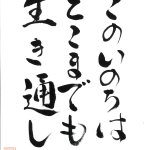 このいのちは
どこまでも
生き通し